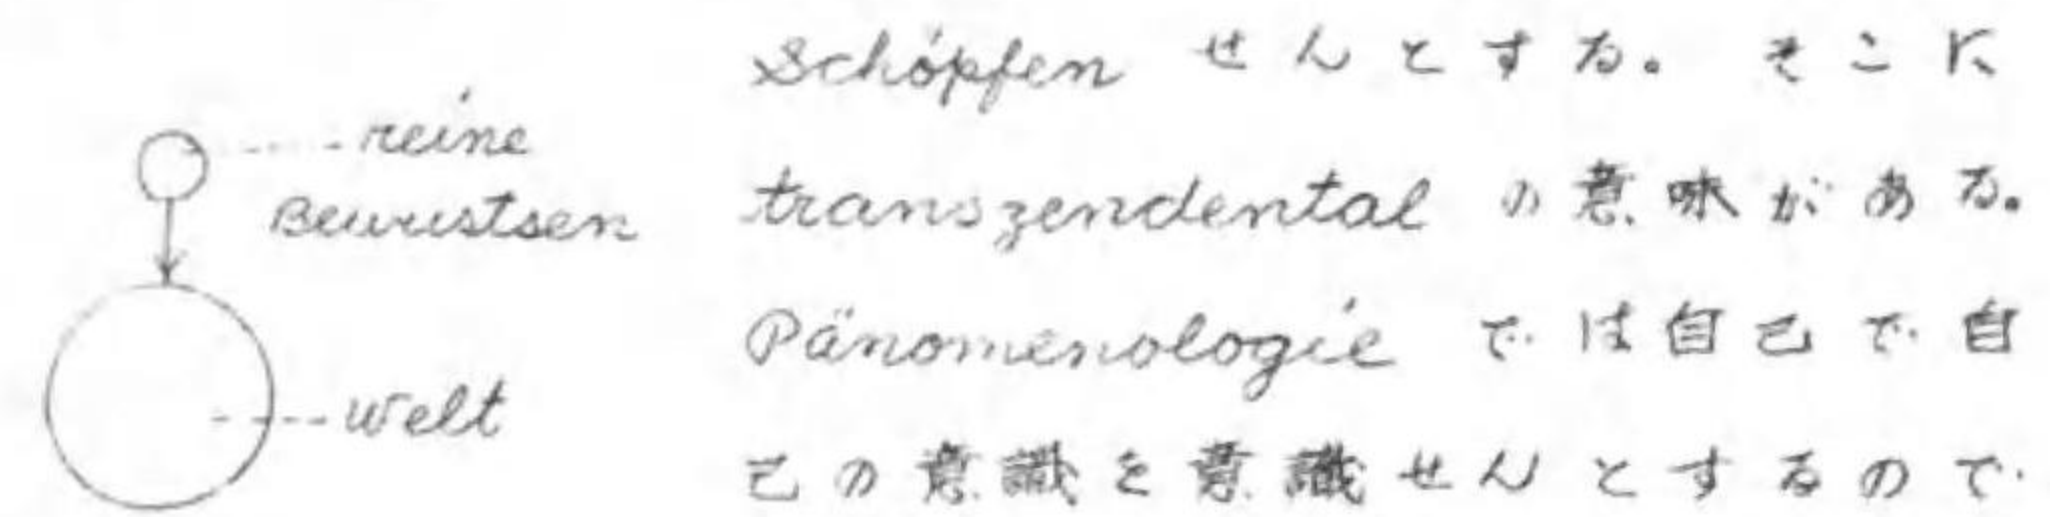 reine
Bewustsen
welt
Schöpfen せんとする。そこに
transzendental の意味がある。
Pänomenologie では自己で自
己の意識を意識せんとするので